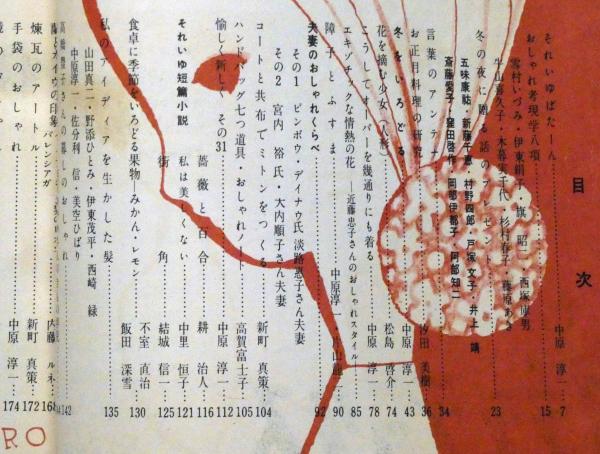 目次
それいゆぱたーん 中原淳一 7
おしゃれ考現学八項 15
雪村いづみ・伊東絹子・旗昭二・西塚庫男
牛山喜久子・木暮実千代・杉村春子・藤原あき
冬の夜に贈る話のプレゼント 23
五味康祐・新藤千恵・村野四郎・戸塚文子・井上靖
斎藤愛子・窪田啓作・岡部伊都子・阿部知二 34
言葉のアンテナ 汐田美樹 36
お正月料理の研究 中原淳一 43
冬をいろどる
花を摘む少女(人形) 松島啓介 74
こうしてオーバーを幾通りにも着る 中原淳一 78
エキゾチックな情熱の花―近藤忠子さんのおしゃれスタイル 85
障子とふすま 90
夫妻のおしゃれくらべ 92
その1 ピンボウ・デイナウ氏 淡路恵子さん夫妻
その2 宮内裕氏・大内順子さん夫妻
コートと共布でミトンをつくる 新町真策 104
ハンドバッグ七つ道具・おしゃれノート 高賀富士子 105
愉しく新しく その31 中原淳一 112
それいゆ短篇小説
薔薇と百合 耕治人 116
私は美しくない 中里恒子 121
街角 結城信一 125
食卓に季節をいろどる果物―みかん・レモン 不室直治 130
飯田深雪
私のアイディアを生かした髪 135
山田真二・野添ひとみ・伊東茂平・西崎緑
中原淳一・佐分利信・美空ひばり
高橋豊子さんの暮しのおしゃれ 142
バレンシアガ 内藤ルネ 168
煉瓦のアートル 新町真策 172
手袋のおしゃれ 中原淳一 174
RO